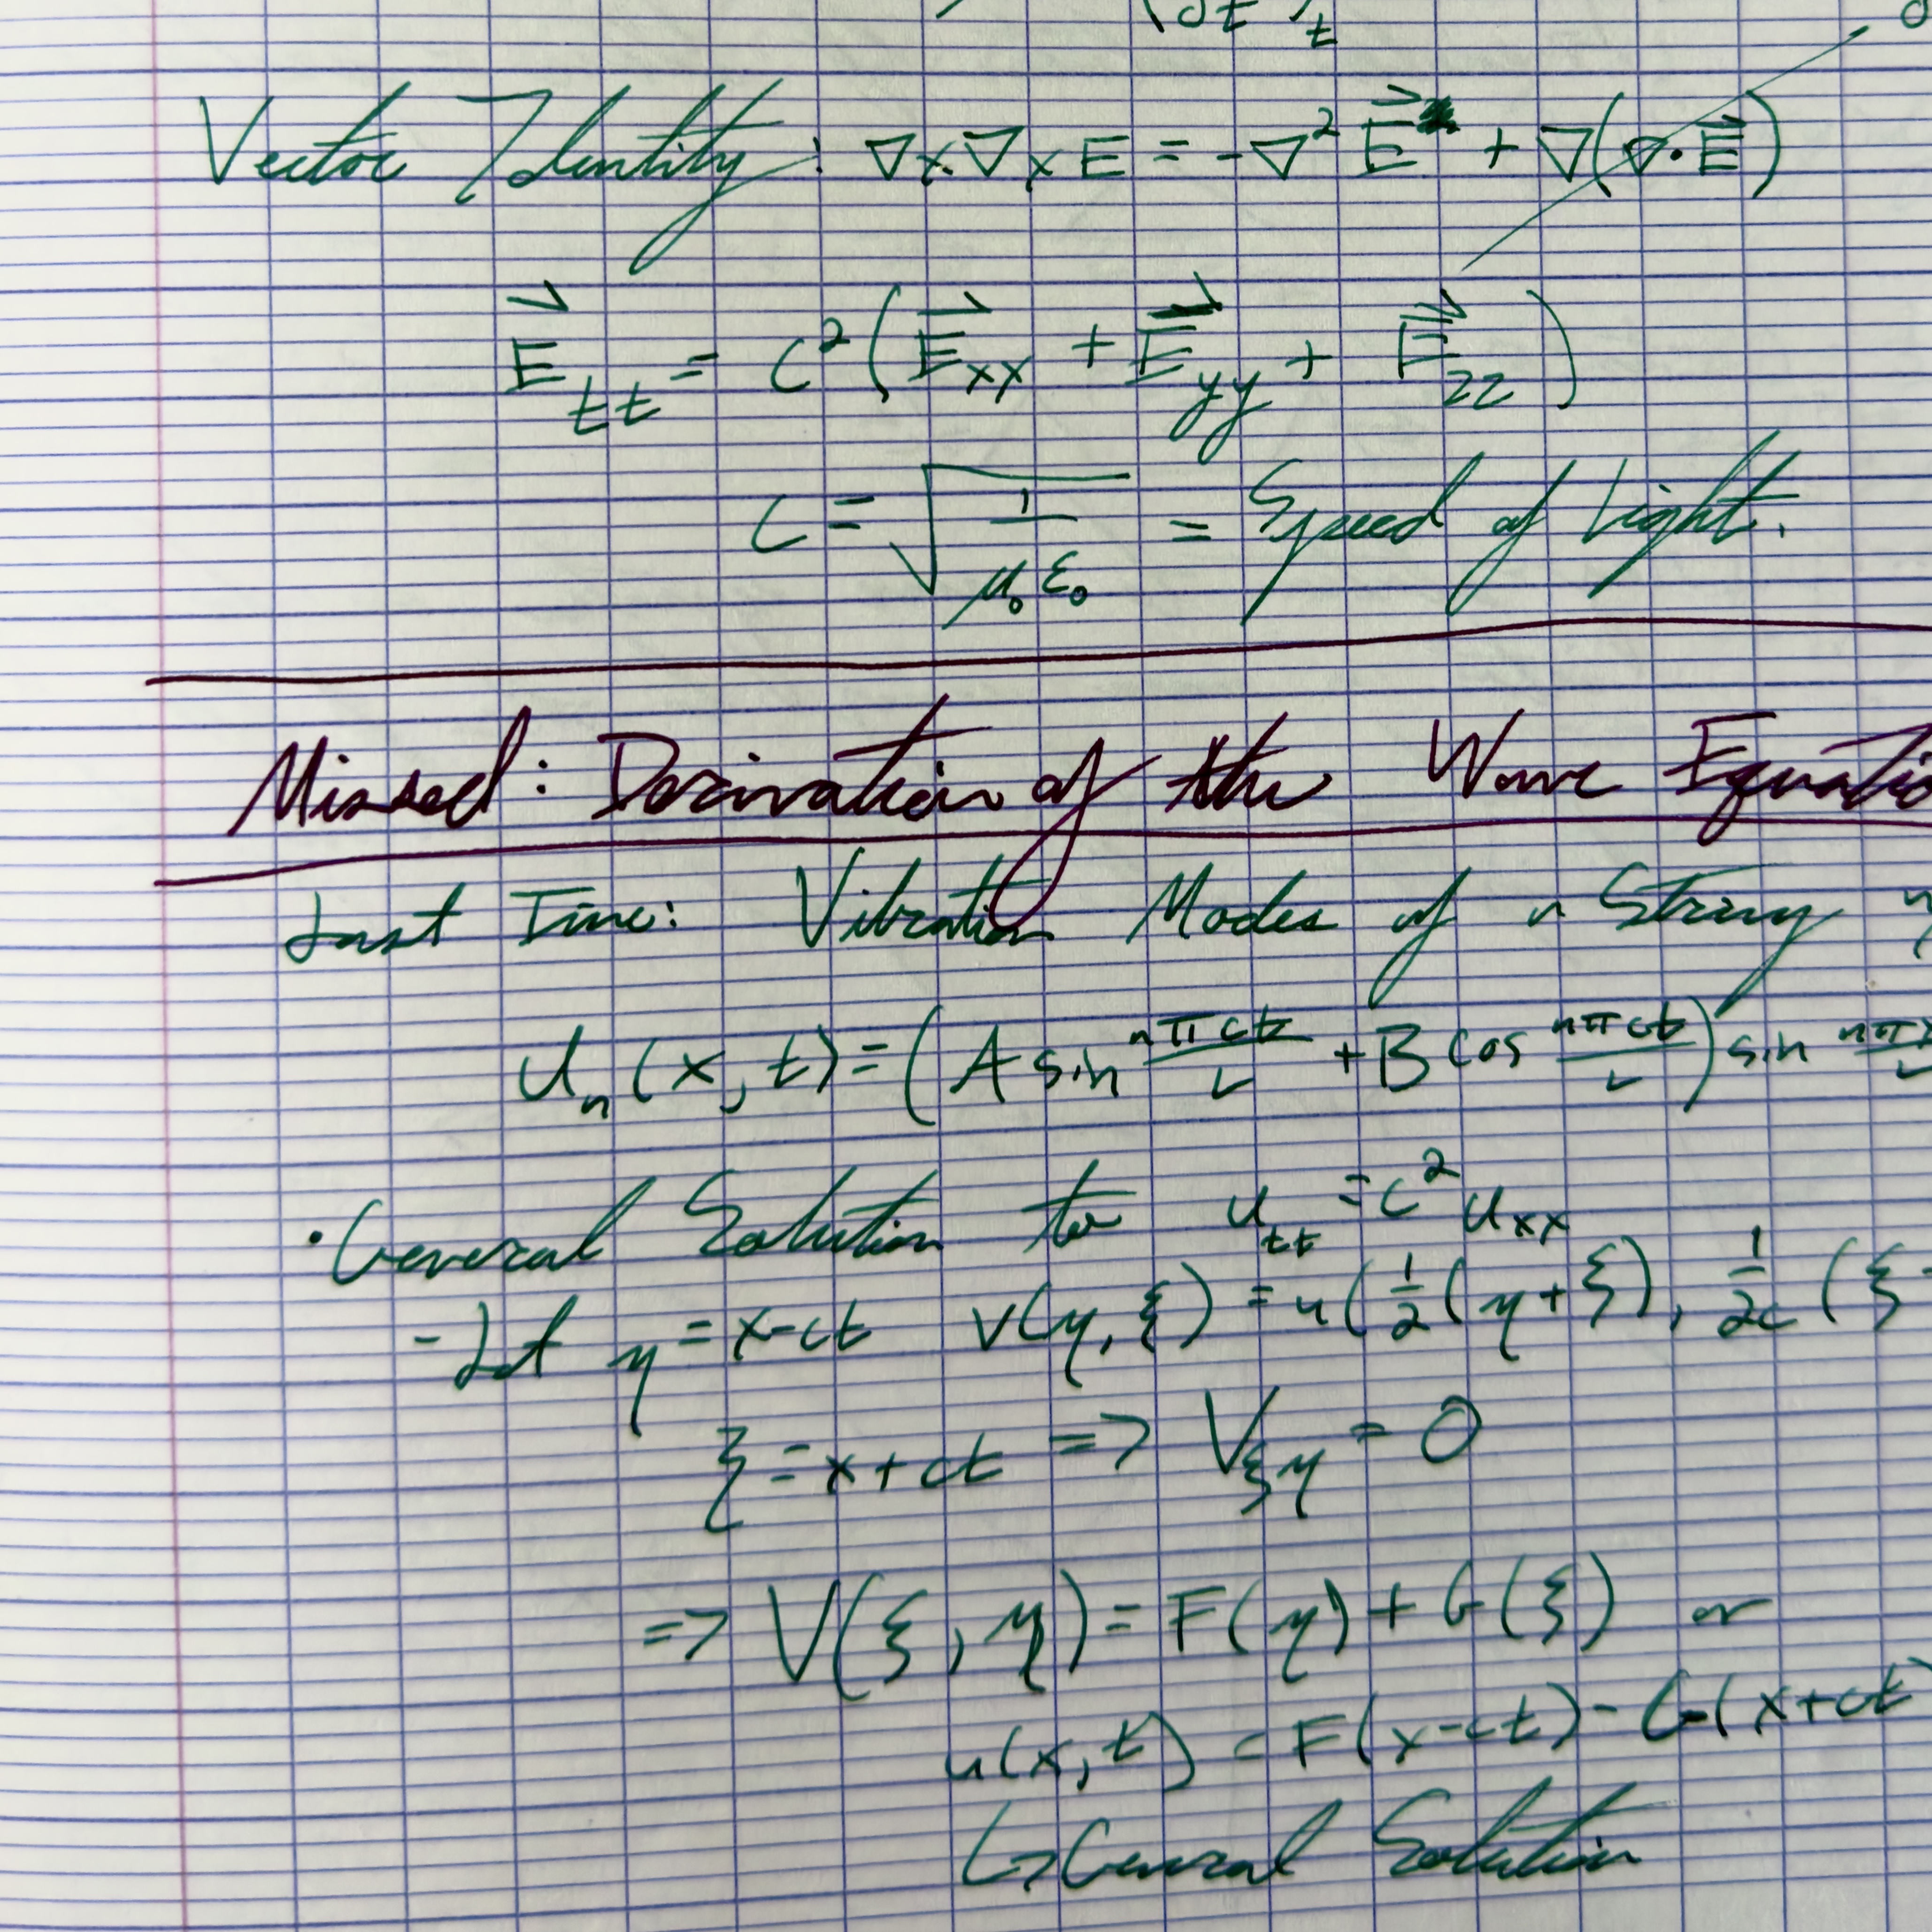 (∂t)t
Vector Identity: ∇×∇×E = -∇² E⃗ + ∇(∇·E⃗)
E⃗tt = C²(E⃗xx + E⃗yy + E⃗zz)
C = √(1/μ₀ε₀) = Speed of Light.
Missed: Derivation of the Wave Equatio
Last Time: Vibration Modes of a String
Un(x,t) = (A sin nπct/L + B cos nπct/L) sin nπx/L
• General Solution to utt = c² uxx
- Let η = x-ct v(η,ξ) = u(1/2(η+ξ), 1/2c(ξ-
ξ = x+ct => Vξη = 0
=> V(ξ,η) = F(η) + G(ξ) or
u(x,t) = F(x-ct) - G(x+ct)
↳ General Solution